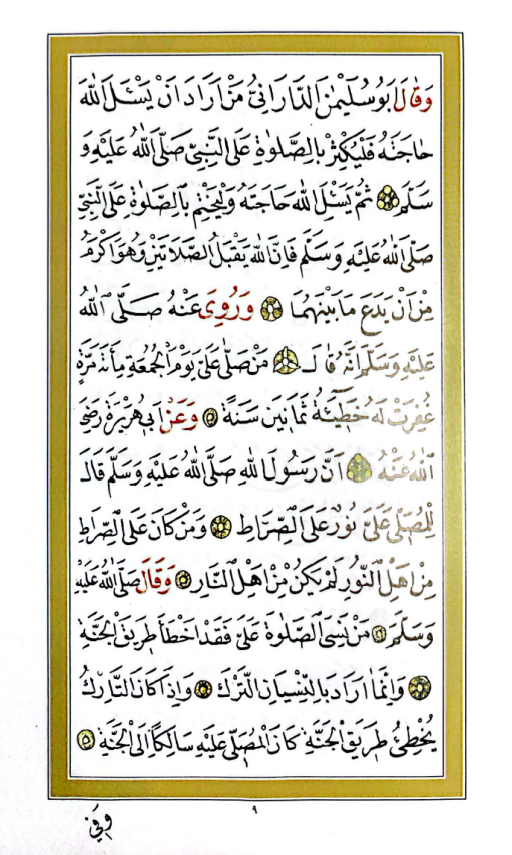 وَقَالَ اَبُو سُلَيْمٰنَ الدَّارَانِىُّ مَنْ اَرَادَ اَنْ يَسْئَلَ اللهَ
حَاجَتَهُ فَلْيُكْثِرْ بِالصَّلٰوةِ عَلَى النَّبِىِّ صَلَّى اللهُ عَلَيْهِ وَ
سَلَّمَ ثُمَّ يَسْئَلِ اللهَ حَاجَتَهُ وَلْيَخْتِمْ بِالصَّلٰوةِ عَلَى النَّبِىِّ
صَلَّى اللهُ عَلَيْهِ وَسَلَّمَ فَاِنَّ اللهَ يَقْبَلُ الصَّلَاتَيْنِ وَهُوَ اَكْرَمُ
مِنْ اَنْ يَدَعَ مَا بَيْنَهُمَا وَرُوِىَ عَنْهُ صَلَّى اللهُ
عَلَيْهِ وَسَلَّمَ اَنَّهُ قَالَ مَنْ صَلَّى عَلَىَّ يَوْمَ الْجُمُعَةِ مِائَةَ مَرَّةٍ
غُفِرَتْ لَهُ خَطِيئَةُ ثَمَانِينَ سَنَةً وَعَنْ اَبِى هُرَيْرَةَ رَضِىَ
اللهُ عَنْهُ اَنَّ رَسُولَ اللهِ صَلَّى اللهُ عَلَيْهِ وَسَلَّمَ قَالَ
لِلْمُصَلِّى عَلَىَّ نُورٌ عَلَى الصِّرَاطِ وَمَنْ كَانَ عَلَى الصِّرَاطِ
مِنْ اَهْلِ النُّورِ لَمْ يَكُنْ مِنْ اَهْلِ النَّارِ وَقَالَ صَلَّى اللهُ عَلَيْهِ
وَسَلَّمَ مَنْ نَسِىَ الصَّلٰوةَ عَلَىَّ فَقَدْ اَخْطَأَ طَرِيقَ الْجَنَّةِ
وَاِنَّمَا اَرَادَ بِالنِّسْيَانِ التَّرْكَ وَاِذَا كَانَ التَّارِكُ
يُخْطِئُ طَرِيقَ الْجَنَّةِ كَانَ الْمُصَلِّى عَلَيْهِ سَالِكًا اِلَى الْجَنَّةِ
٩
وَفِى